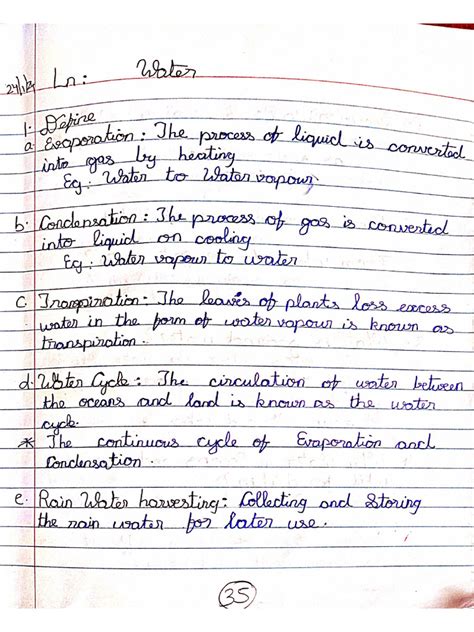 24/1/24 Ln: Water
1. Define
a. Evaporation: The process of liquid is converted
into gas by heating
Eg: Water to Water vapour.
b. Condensation: The process of gas is converted
into liquid on cooling
Eg: Water vapour to water
c Transpiration: The leaves of plants loss excess
water in the form of water vapour is known as
transpiration.
d. Water Cycle: The circulation of water between
the oceans and land is known as the water
cycle.
* The continuous cycle of Evaporation and
Condensation.
e. Rain Water harvesting: Collecting and Storing
the rain water for later use.
35